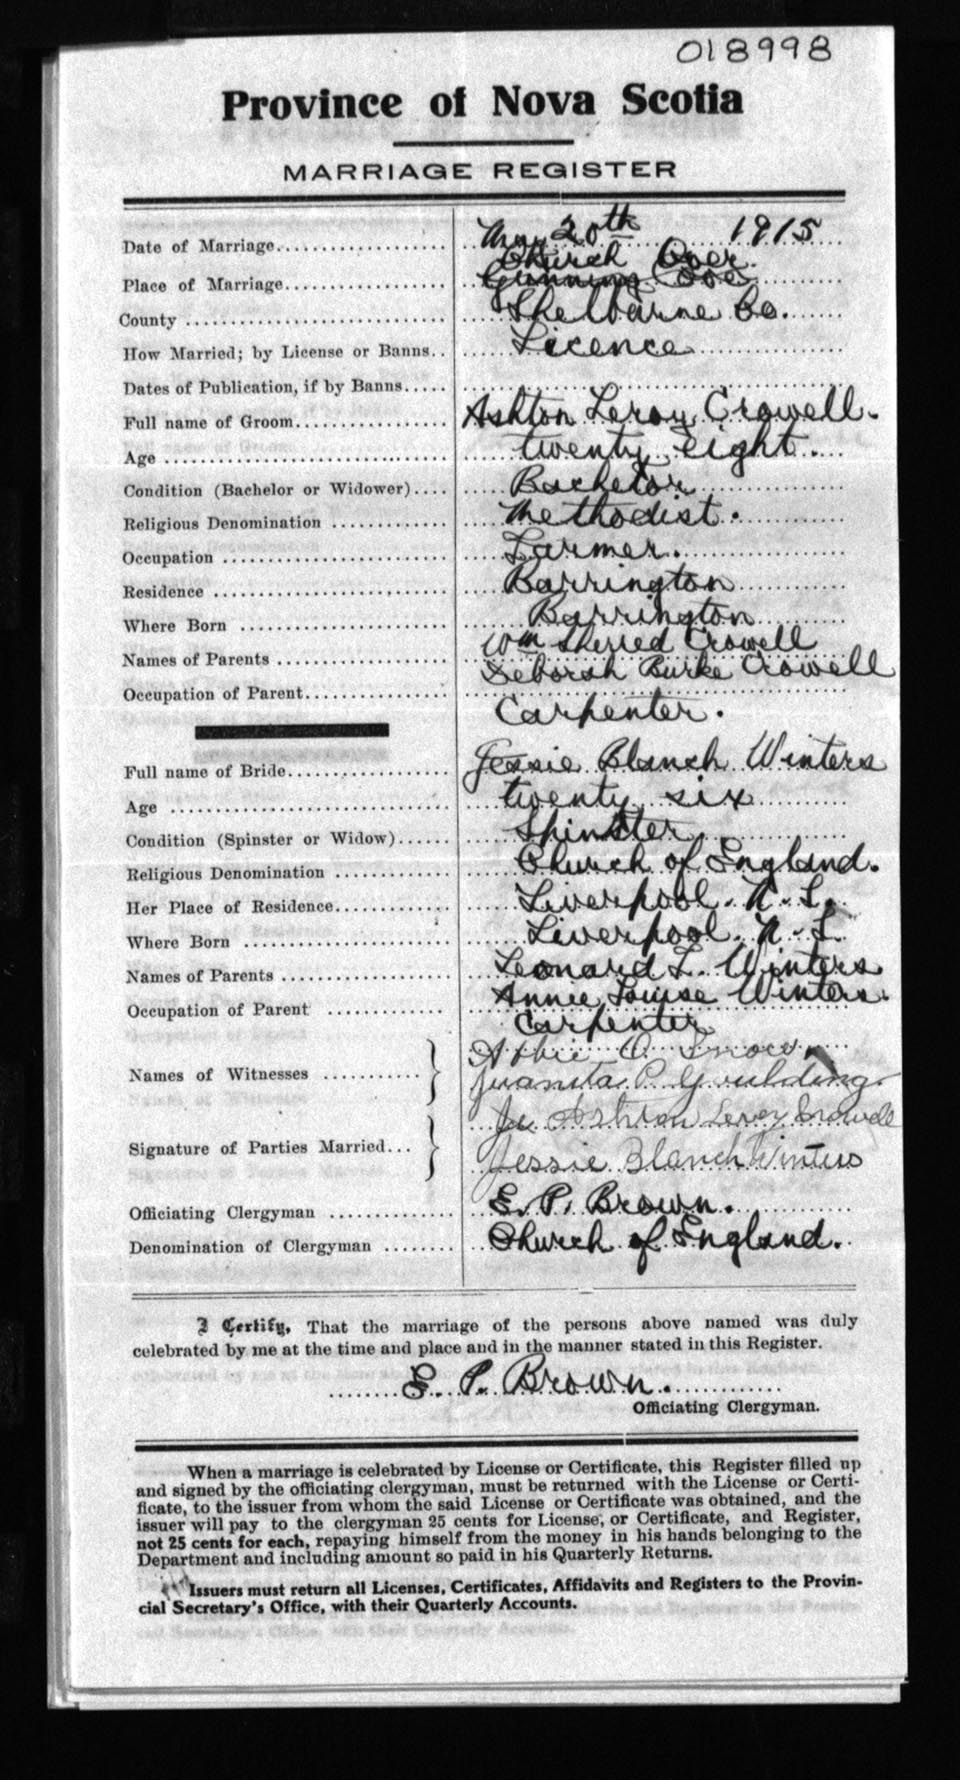 018998
Province of Nova Scotia
MARRIAGE REGISTER
Date of Marriage.................... May 20th 1915
Church Over.
Place of Marriage................... Gunning Cove
County .............................. Shelburne Co.
How Married; by License or Banns.. Licence
Dates of Publication, if by Banns.....
Full name of Groom.................. Ashton Leroy Crowell.
Age ................................. twenty eight.
Condition (Bachelor or Widower).... Bachelor
Religious Denomination ............. Methodist.
Occupation .......................... Farmer.
Residence ........................... Barrington
Where Born ......................... Barrington
Names of Parents ................... Wm Sherred Crowell
Deborah Burke Crowell
Occupation of Parent................ Carpenter.
Full name of Bride.................. Jessie Blanch Winters
Age ................................. twenty six
Condition (Spinster or Widow)...... Spinster
Religious Denomination ............. Church of England.
Her Place of Residence.............. Liverpool. N. S.
Where Born ......................... Liverpool. N. S.
Names of Parents ................... Leonard L. Winters
Annie Louise Winters.
Occupation of Parent ............... Carpenter
Names of Witnesses ............ O.
Juanita P. Goulding
Signature of Parties Married... Ashton Leroy Crowell
Jessie Blanch Winters
Officiating Clergyman ............... E. P. Brown.
Denomination of Clergyman ......... Church of England.
I Certify, That the marriage of the persons above named was duly
celebrated by me at the time and place and in the manner stated in this Register.
E. P. Brown.
Officiating Clergyman.
When a marriage is celebrated by License or Certificate, this Register filled up
and signed by the officiating clergyman, must be returned with the License or Certi-
ficate, to the issuer from whom the said License or Certificate was obtained, and the
issuer will pay to the clergyman 25 cents for License, or Certificate, and Register,
not 25 cents for each, repaying himself from the money in his hands belonging to the
Department and including amount so paid in his Quarterly Returns.
Issuers must return all Licenses, Certificates, Affidavits and Registers to the Provin-
cial Secretary's Office, with their Quarterly Accounts.